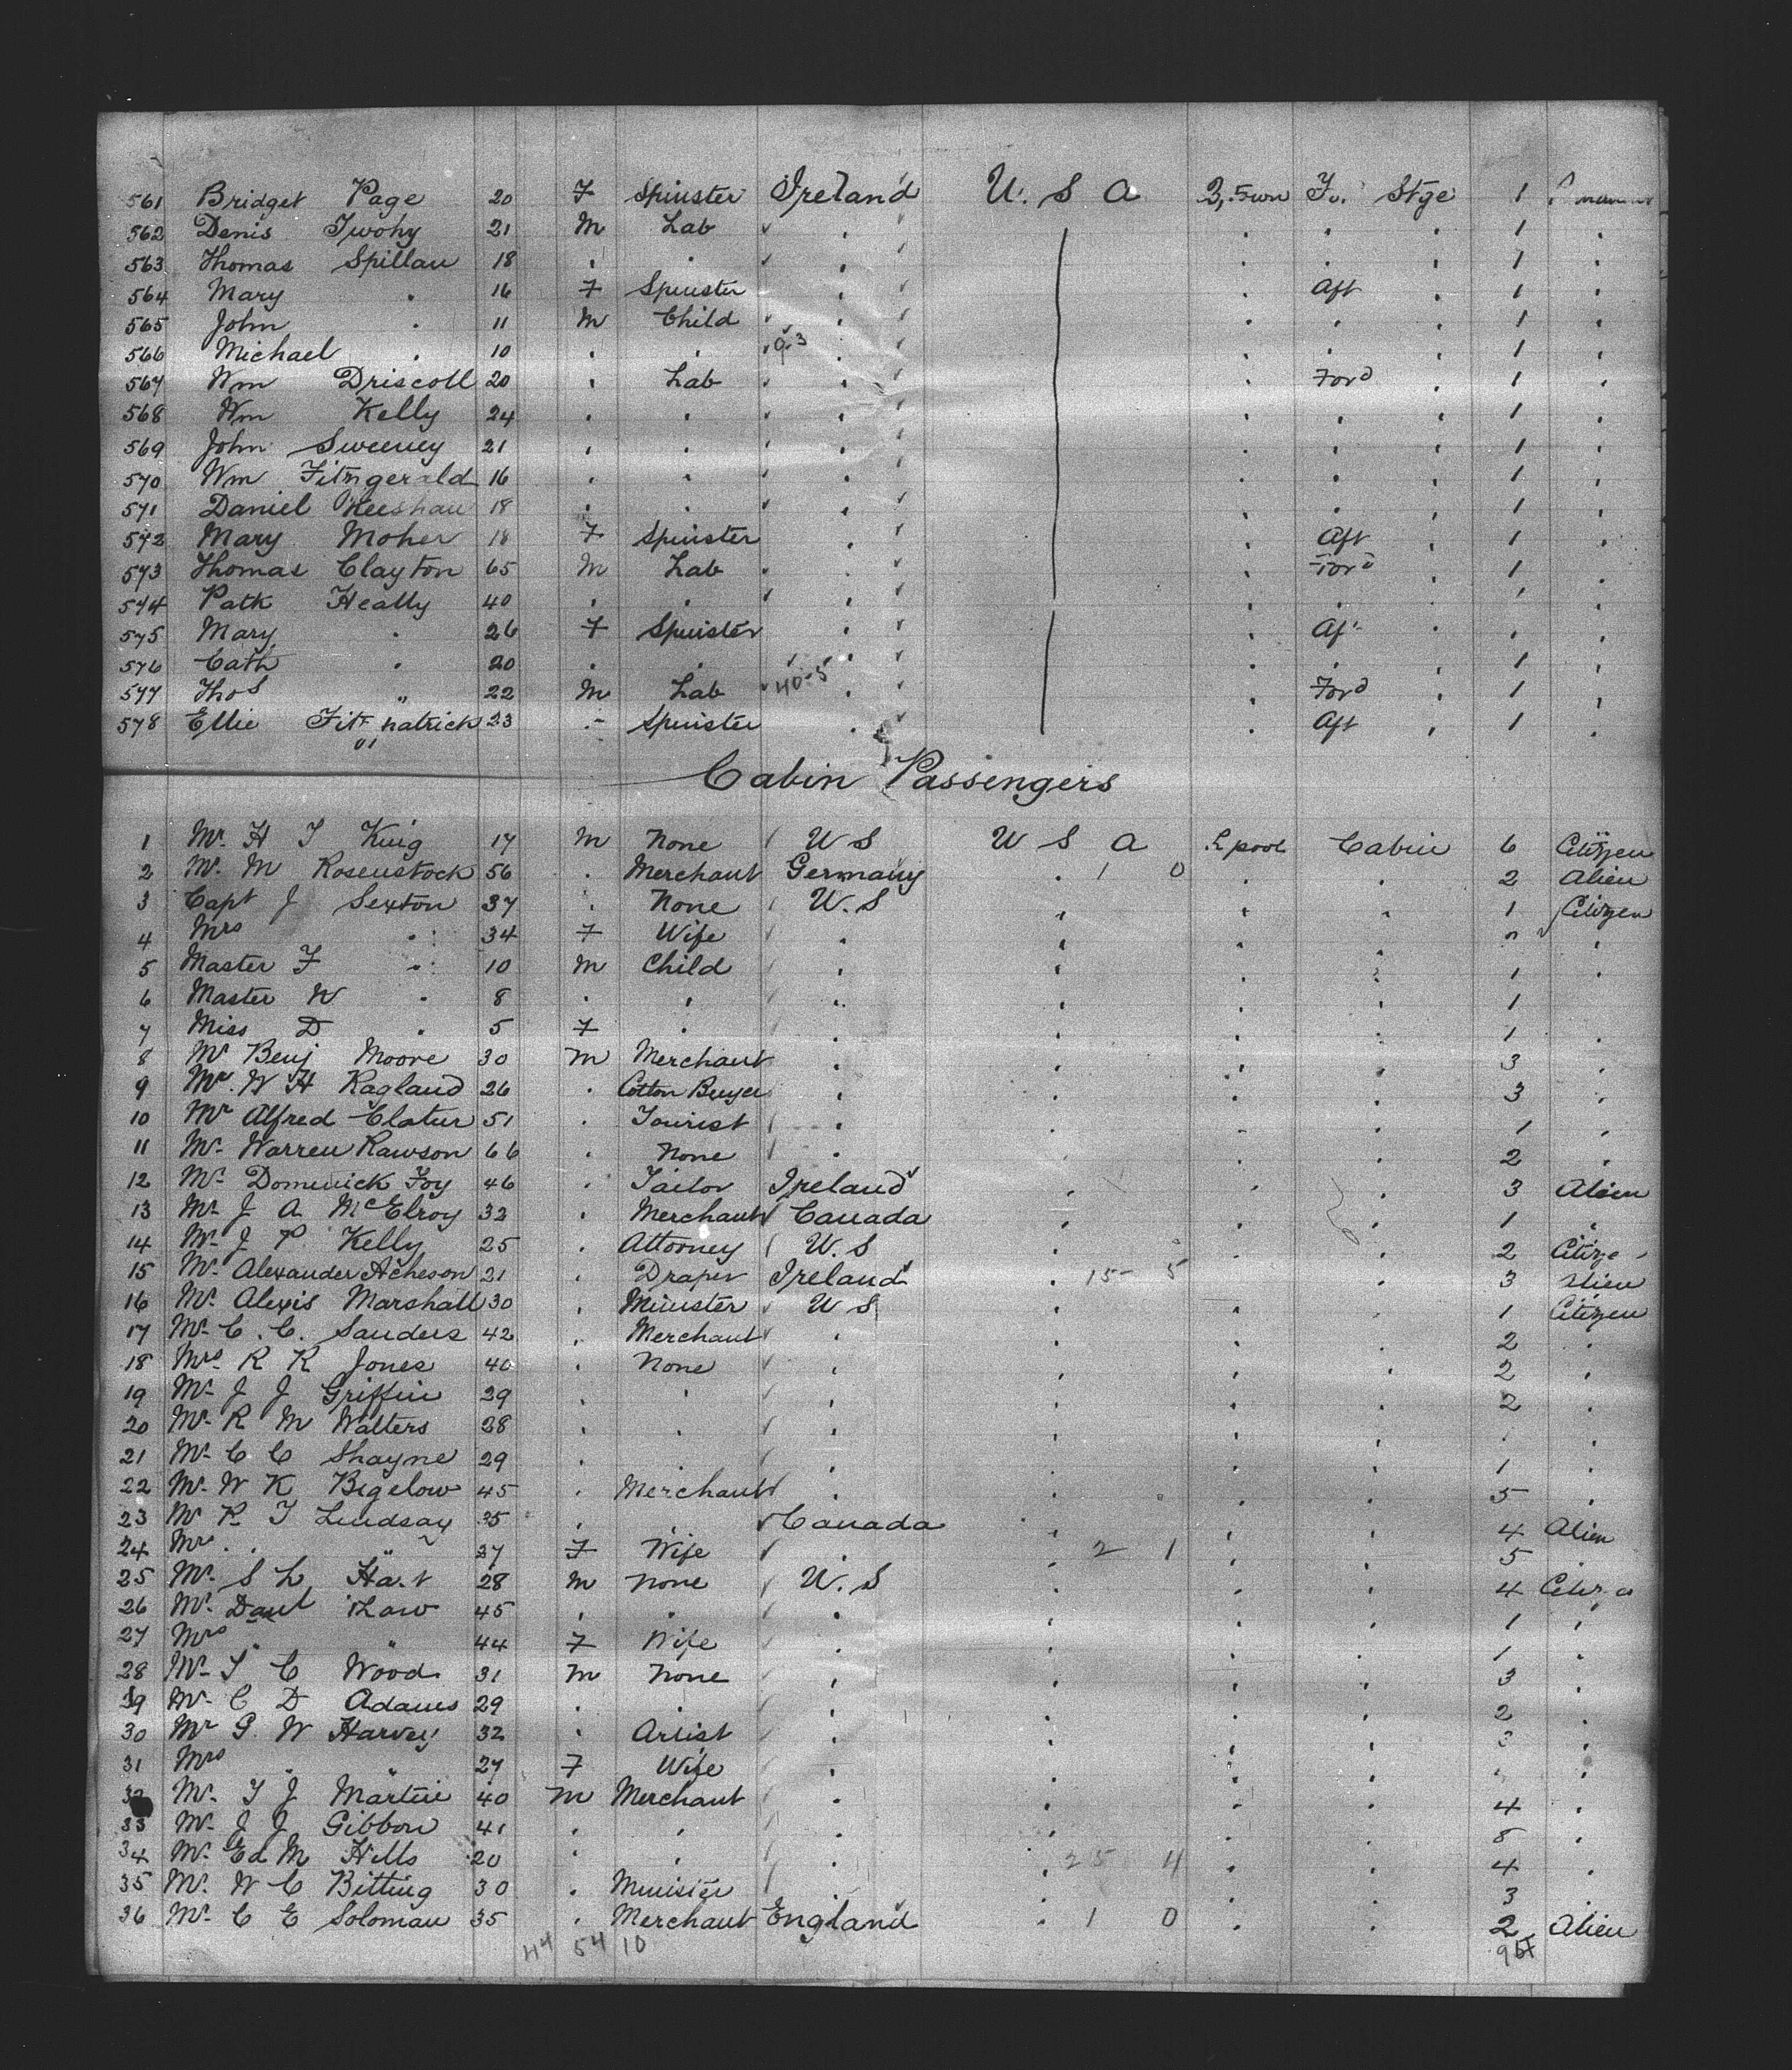 561 Bridget Page 20 F Spinster Ireland U. S A Q. Town Fd. Stge 1
562 Denis Twohy 21 M Lab 1
563 Thomas Spillau 18 1
564 Mary " 16 F Spinster Aft 1
565 John " 11 M Child 1
566 Michael " 10 9-3 1
567 Wm Driscoll 20 Lab Ford 1
568 Wm Kelly 24 1
569 John Sweeney 21 1
570 Wm Fitzgerald 16 1
571 Daniel 18 1
572 Mary Moher 18 F Spinster Aft 1
573 Thomas Clayton 65 M Lab Ford 1
574 Patk Heally 40
575 Mary " 26 F Spinster Aft
576 Cath " 20 1
577 Thos " 22 M Lab 40-5 Ford 1
578 Ellie Fitzpatrick 23 Spinster Aft 1
Cabin Passengers
1 Mr. H T King 17 M None U S U S A L pool Cabin 6 Citizen
2 Mr. M Rosenstock 56 Merchant Germany 1 0 2 Alien
3 Capt J Sexton 37 None U. S 1 Citizen
4 Mrs " 34 F Wife
5 Master F " 10 M Child 1
6 Master W " 8 1
7 Miss D " 5 F 1
8 Mr Benj Moore 30 M Merchant 3
9 Mr. W H Ragland 26 Cotton Buyer 3
10 Mr Alfred Clatur 51 Tourist 1
11 Mr. Warren Rawson 66 None 2
12 Mr. Dominick Foy 46 Tailor Ireland 3 Alien
13 Mr. J A McElroy 32 Merchant Canada 1
14 Mr. J P Kelly 25 Attorney U. S 2 Citize
15 Mr. Alexander Acheson 21 Draper Ireland 15 5 3 Alien
16 Mr. Alexis Marshall 30 Minister U S 1 Citizen
17 Mr. C. C. Sanders 42 Merchant 2
18 Mrs R K Jones 40 None 2
19 Mr. J J Griffin 29 2
20 Mr. R M Walters 28
21 Mr. C C Shayne 29 1
22 Mr. W K Bigelow 45 Merchant 5
23 Mr R J Lindsay 35 Canada 4 Alien
24 Mrs " 27 F Wife 2 1 5
25 Mr. S L Hart 28 M None U. S 4
26 Mr. Danl 45 1
27 Mrs " 44 F Wife 1
28 Mr. C Wood 31 M None 3
29 Mr. C D Adams 29 2
30 Mr G. W Harvey 32 Artist 3
31 Mrs " 27 F Wife
32 Mr. T J Martin 40 M Merchant 4
33 Mr. J J Gibbon 41 8
34 Mr. Ed M Hills 20 25 4 4
35 Mr. W C Bitting 30 Minister 3
36 Mr. C E Soloman 35 Merchant England 1 0 2 Alien
44 54 10